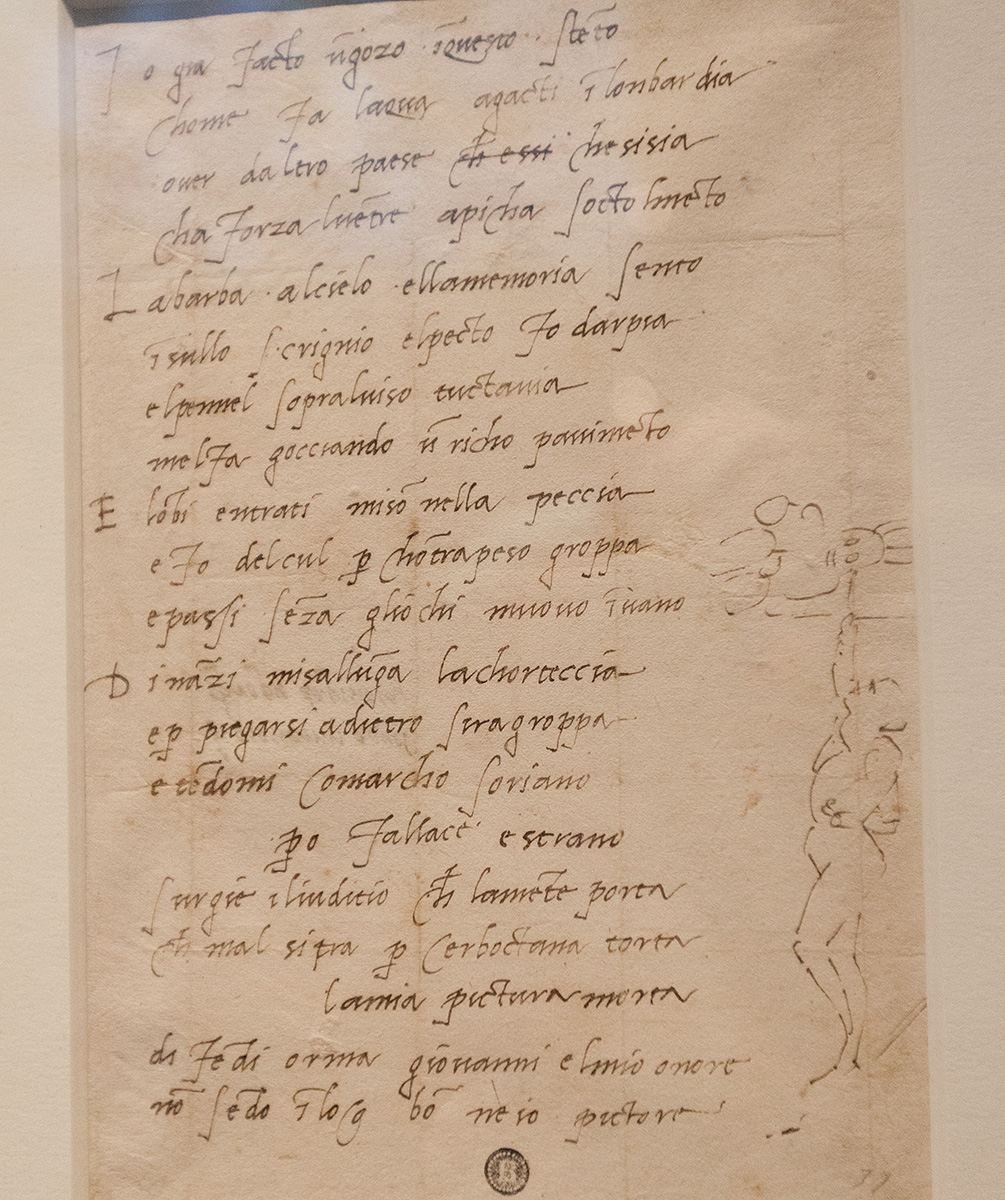 Io gia facto ūgozo īquesto stēto
chome fa laqua agacti ī lonbardia
over daltro paese ch̄ essi chesisia
cha forza lvētre apicha socto lmēto
La barba alcielo ellamemoria sento
īsullo scrignio elpecto fo darpia
elpennel sopralviso tuctavia
melfa gocciando ū richo pavimēto
E lōbi entrati misō nella peccia
e fo delcul p̱ chōtrapeso groppa
e passi sēza gliochi muovo īvano
Dināzi misallūga lachorteccia
e p̱ piegarsi adietro siragroppa
e tēdomi comarcho soriano
p̱o fallace e strano
surgie iliuditio ch̄ lamēte porta
ch̄ mal si tra p̱ cerboctana torta
lamia pictura morta
di fēdi orma giovanni elmio onore
nō sēdo īlog bō ne io pictore